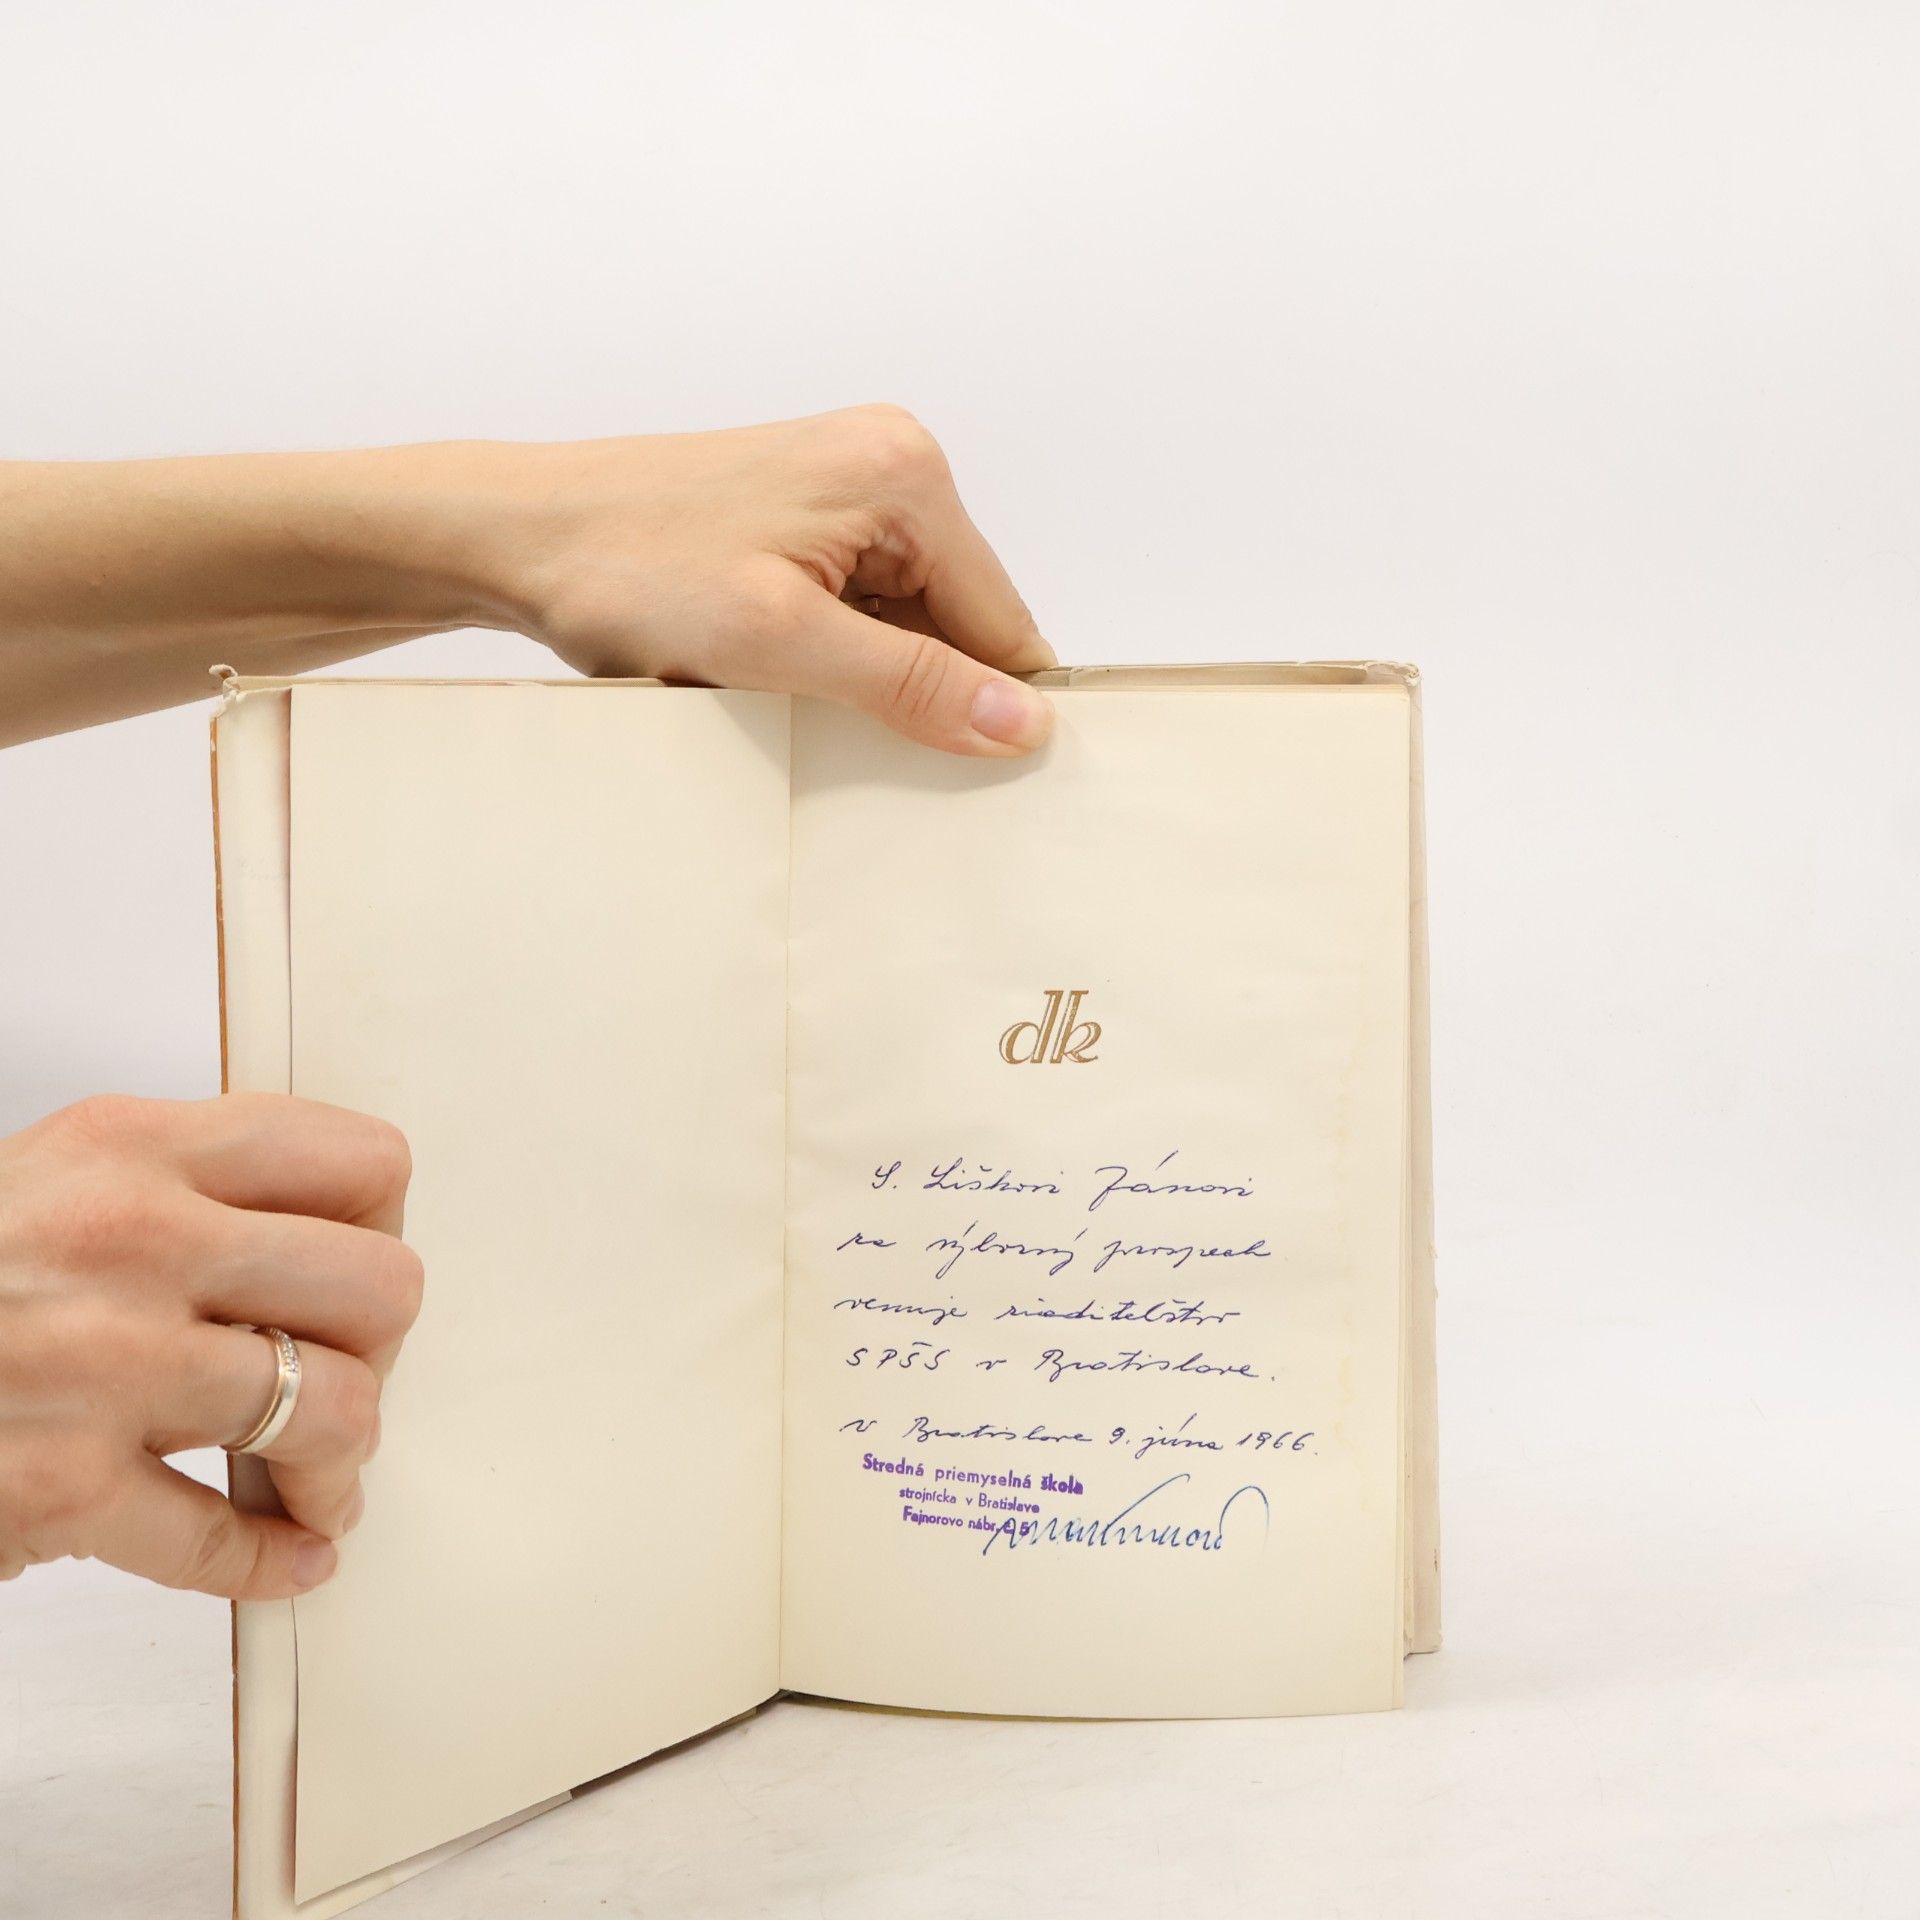 dk
S. Liškovi Jánovi
za výborný prospech
venuje riaditeľstvo
SPŠS v Bratislave.
v Bratislave 9. júna 1966.
Stredná priemyselná škola
strojnícka v Bratislave
Fajnorovo nábr. č. 5